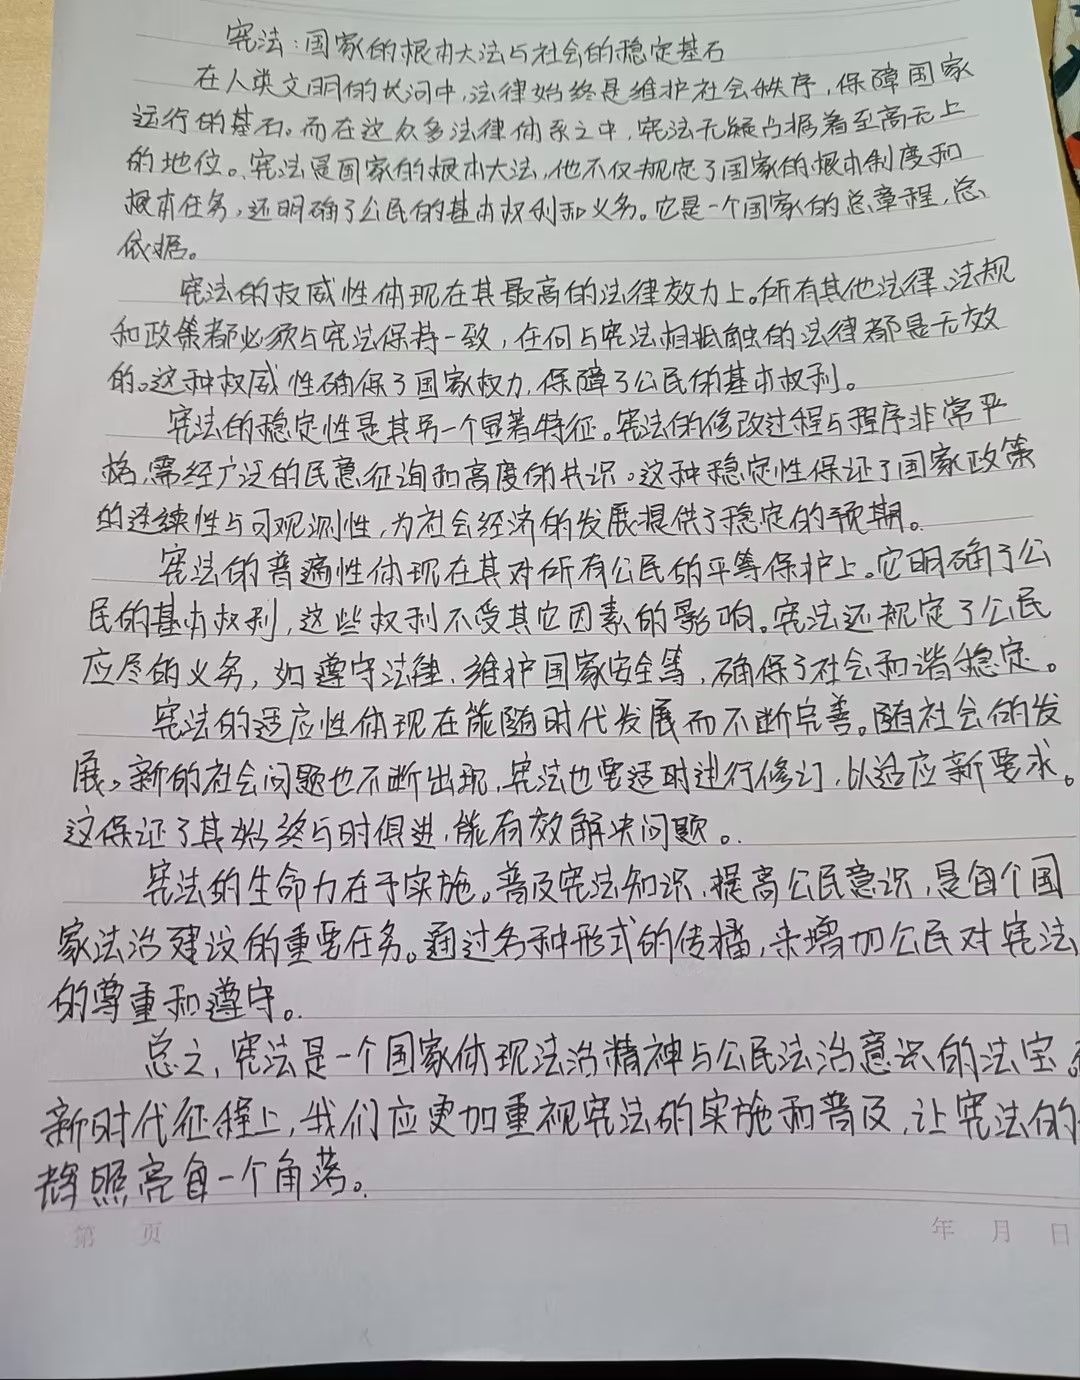 宪法：国家的根本大法与社会的稳定基石
在人类文明的长河中，法律始终是维护社会秩序，保障国家
运行的基石。而在这众多法律体系之中，宪法无疑占据着至高无上
的地位。宪法是国家的根本大法，他不仅规定了国家的根本制度和
根本任务，还明确了公民的基本权利和义务。它是一个国家的总章程，总
依据。
宪法的权威性体现在其最高的法律效力上。所有其他法律、法规
和政策都必须与宪法保持一致，任何与宪法相抵触的法律都是无效
的。这种权威性确保了国家权力，保障了公民的基本权利。
宪法的稳定性是其另一个显著特征。宪法的修改过程与程序非常严
格，需经广泛的民意征询和高度的共识。这种稳定性保证了国家政策
的连续性与可观测性，为社会经济的发展提供了稳定的预期。
宪法的普遍性体现在其对所有公民的平等保护上。它明确了公
民的基本权利，这些权利不受其它因素的影响。宪法还规定了公民
应尽的义务，如遵守法律、维护国家安全等，确保了社会和谐稳定。
宪法的适应性体现在能随时代发展而不断完善。随社会的发
展，新的社会问题也不断出现，宪法也要适时进行修订，以适应新要求。
这保证了其始终与时俱进，能有效解决问题。
宪法的生命力在于实施。普及宪法知识，提高公民意识，是每个国
家法治建设的重要任务。通过各种形式的传播，来增加公民对宪法
的尊重和遵守。
总之，宪法是一个国家体现法治精神与公民法治意识的法宝。
新时代征程上，我们应更加重视宪法的实施和普及，让宪法的
辉照亮每一个角落。
第 页 年 月 日